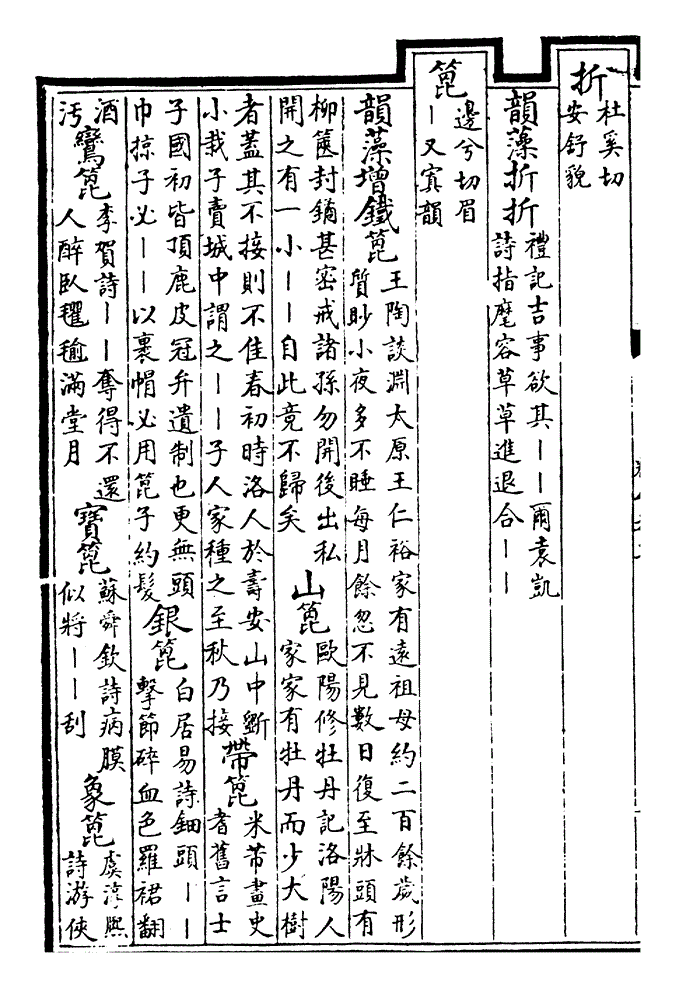 折
杜奚切
安舒貌
韻藻折折
禮記吉事欲其——爾袁凱
詩指麾容草草進退合——
篦
邊兮切眉
—又寘韻
韻藻增鐵篦
王陶談淵太原王仁裕家有遠祖母約二百餘歲形
質眇小夜多不睡每月餘忽不見數日復至牀頭有
柳篋封鐍甚密戒諸孫勿開後出私
開之有一小——自此竟不歸矣
山篦
歐陽修牡丹記洛陽人
家家有牡丹而少大樹
者蓋其不接則不佳春初時洛人於壽安山中斸
小栽子賣城中謂之——子人家種之至秋乃接
帶篦
米芾畫史
耆舊言士
子國初皆頂鹿皮冠弁遺制也更無頭
巾掠子必——以裹帽必用篦子約髮
銀篦
白居易詩鈿頭——
擊節碎血色羅裙翻
酒
汚
鸞篦
李賀詩——奪得不還
人醉臥氍毹滿堂月
寶篦
蘇舜欽詩病膜
似將——刮
象篦
虞淳熙
詩游俠